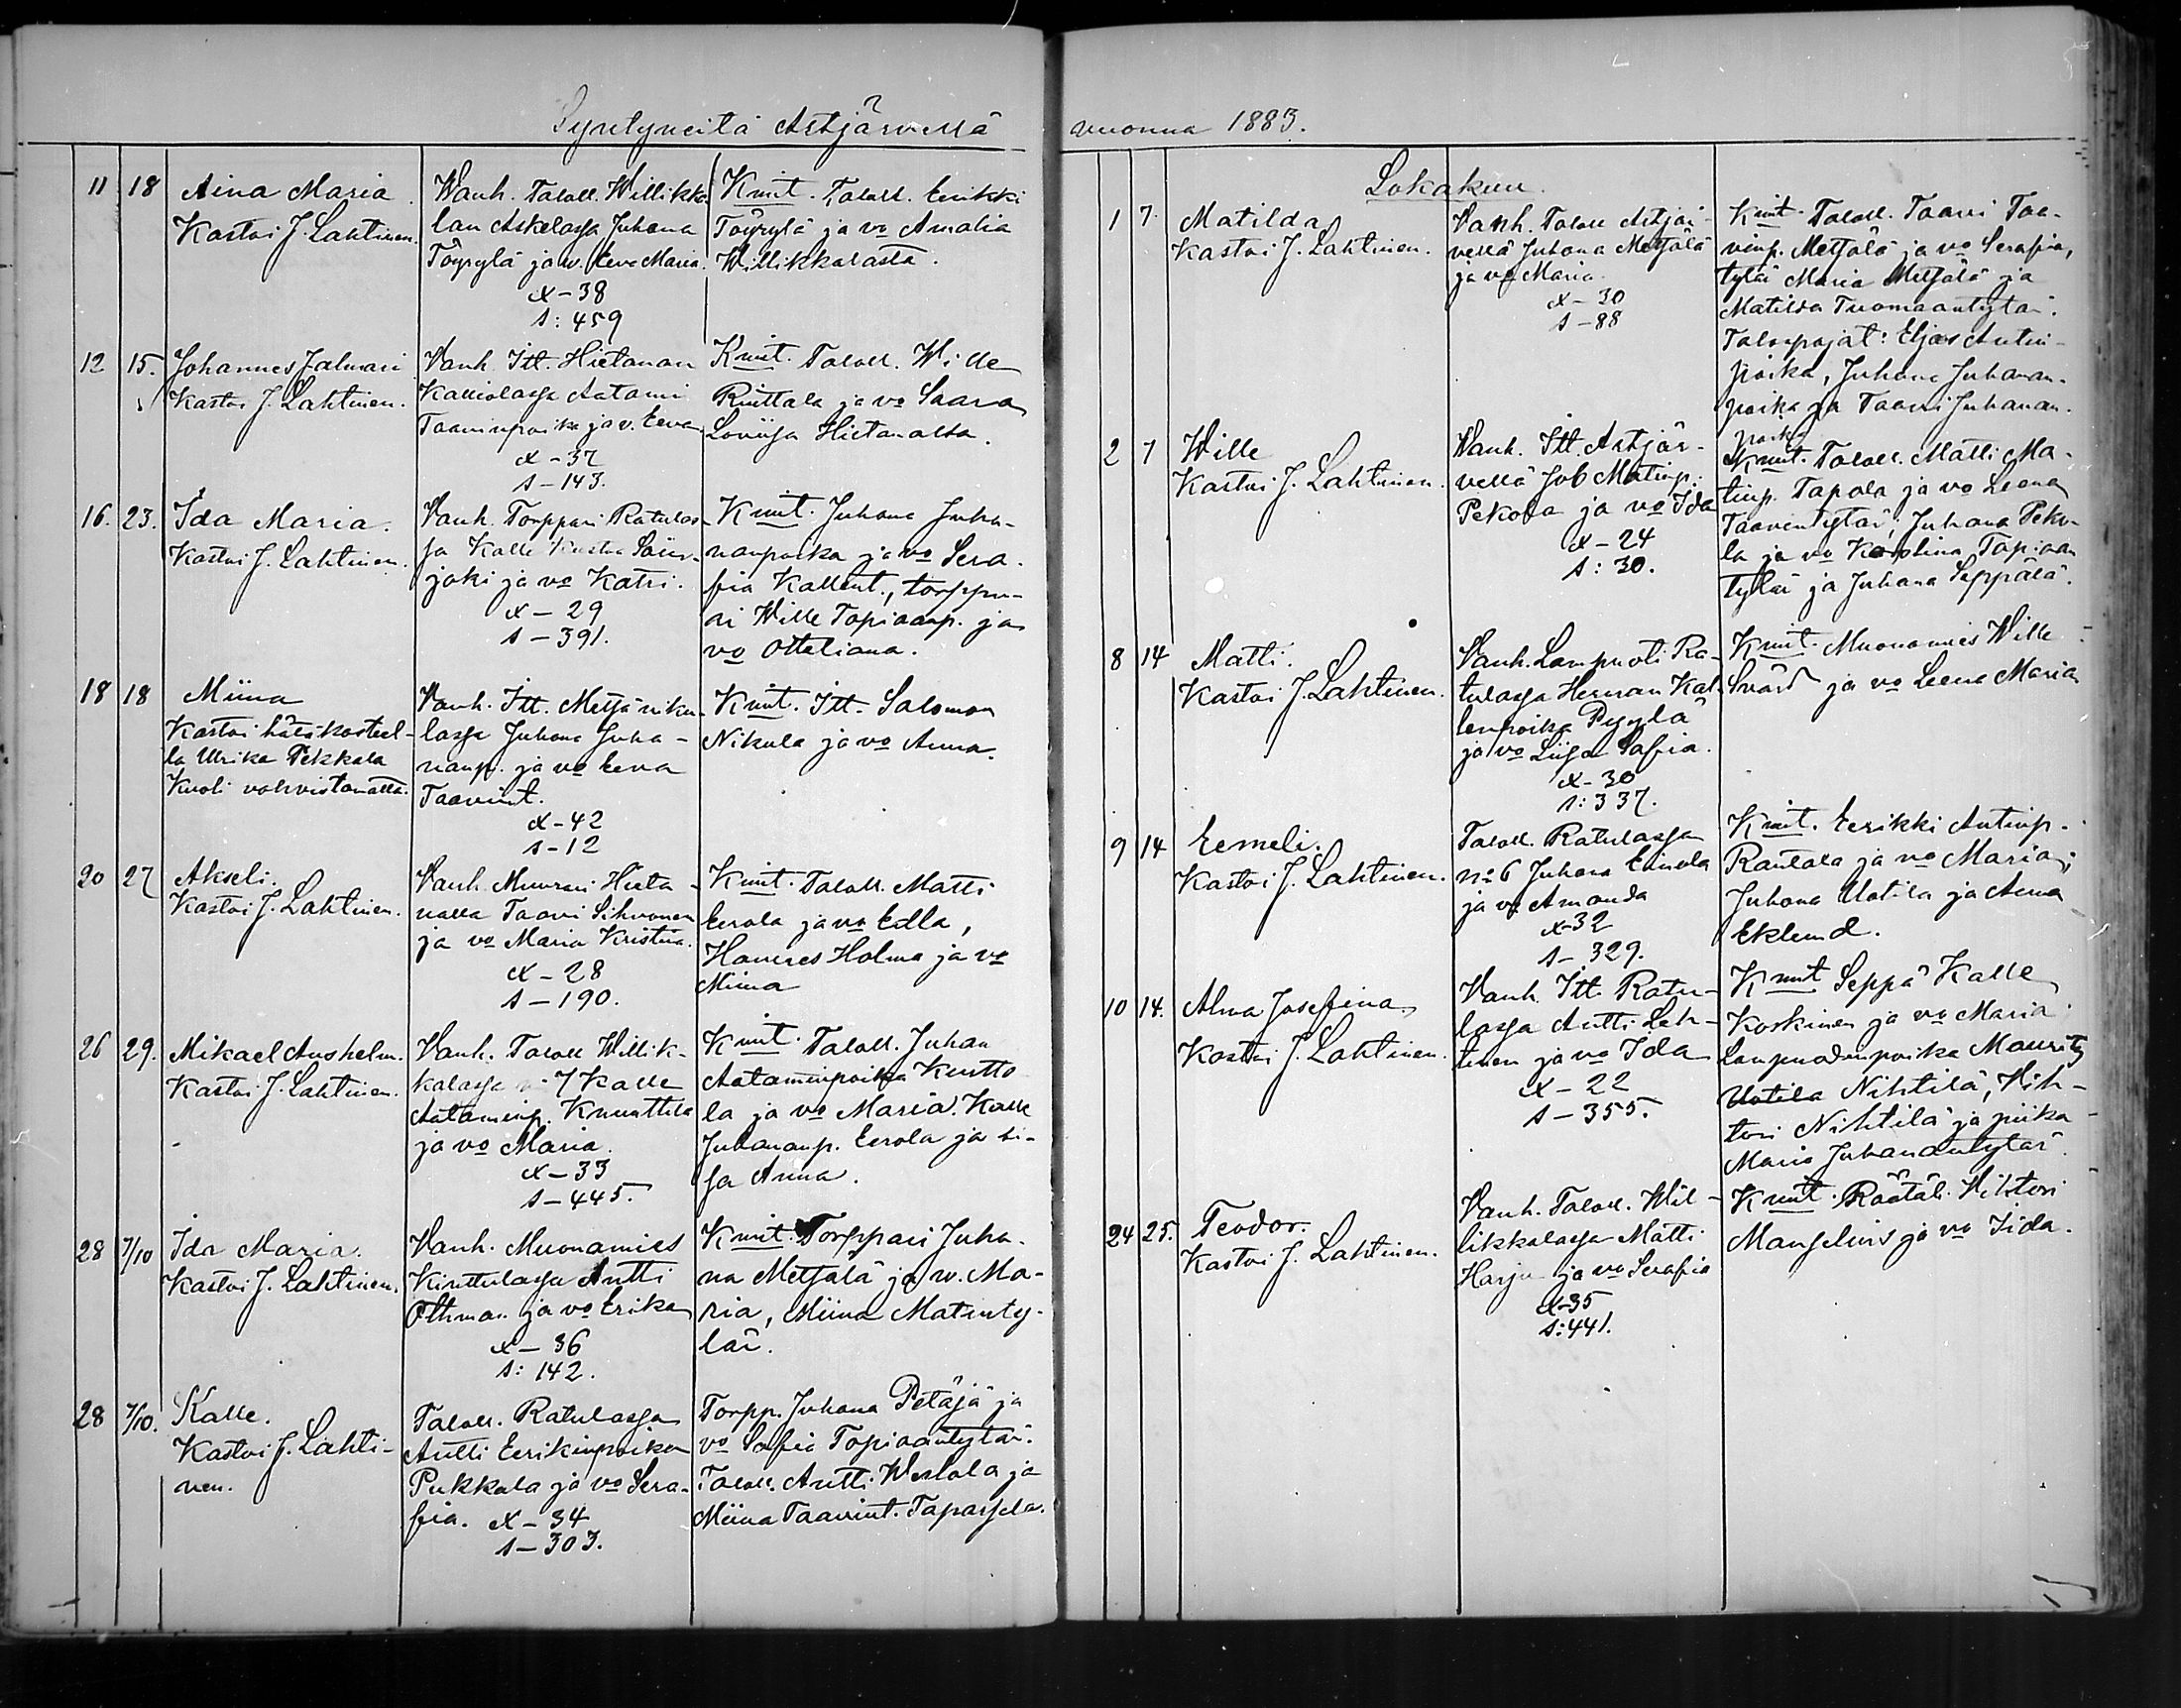 Syntyneitä Artjärvellä
11 18 Aina Maria.
Kastoi J. Lahtinen.
Vanh. Taloll. Willikka-
lan Askelassa Juhana
Töyrylä ja v. Eeva Maria.
x-38
s: 459
Kmit. Taloll. Eerikki
Töyrylä ja vo Amalia
Willikkalasta.
12 15. Johannes Jalmari
Kastoi J. Lahtinen.
Vanh. Itt. Hietanan
Kalliolassa Aatami
Taavinpoika ja v. Eeva
x-37
s-143.
Kmit. Taloll. Wille
Ruittala ja vo Saara
Loviisa Hietanalta.
16. 23. Ida Maria.
Kastoi J. Lahtinen.
Vanh. Torppari Ratulas-
sa Kalle Kustaa
joki ja vo Katri.
x-29
s-391.
Kmit. Juhana Juha-
nanpoika ja vo Sera-
fia Kallent., torppa-
ri Wille Topiaanp. ja
vo Otteliana.
18 18 Miina
Kastoi hätäkasteel-
la Ulrika Pekkala
Kuoli vahvistamatta.
Vanh. Itt. Metsäniku-
lassa Juhana Juha-
nanp. ja vo Eeva
Taavint.
x-42
s-12
Kmit. Itt. Salomon
Nikula ja vo Anna.
20 27 Akseli.
Kastoi J. Lahtinen.
Vanh. Muurari Hieta-
nalla Taavi Sihvonen
ja vo Maria Kristiina.
x-28
s-190.
Kmit. Taloll. Matti
Eerola ja vo Edla,
Hannes Holma ja vo
Miina
26 29. Mikael Anshelm.
Kastoi J. Lahtinen.
Vanh. Taloll. Willik-
kalassa n:o 7 Kalle
Aataminp. Knuuttila
ja vo Maria.
x-33
s-445.
Kmit. Taloll. Juhan
Aataminpoika Kintto
la ja vo Maria. Kalle
Juhananp. Eerola ja si-
sa Anna.
28 7/10 Ida Maria.
Kastoi J. Lahtinen.
Vanh. Muonamies
Kinttulassa Antti
Öthman ja vo Erika
x-36
s: 142.
Kmit. Torppari Juha-
na Metsälä ja w. Ma-
ria, Miina Matinty-
tär.
28 7/10. Kalle.
Kastoi J. Lahti-
nen.
Taloll. Ratulassa
Antti Eerikinpoika
Pukkala ja vo Sera-
fia. x-34
s-303.
Torpp. Juhana Petäjä ja
vo Sofia Topiaantytär.
Taloll. Antti Westola ja
Miina Taavint. Tapassela.
vuonna 1883.
Lokakuu.
1 7. Matilda
Kastoi J. Lahtinen.
Vanh. Taloll. Artjär-
vellä Juhana Metsälä
ja vo Maria.
x-30
s-88
Kmit. Taloll. Taavi Taa-
vinp. Metsälä ja vo Serafia,
tytär Maria Metsälä ja
Matilda Tuomaantytär.
Talonpojat: Eljas Antin-
poika, Juhana Juhanan-
poika ja Taavi Juhanan-
poika
2 7 Wille
Kastoi J. Lahtinen.
Vanh. Itt. Artjär-
vellä Job Matinp.
Pekola ja vo Ida
x-24
s: 30.
Kmit. Taloll. Matti Ma-
tinp. Tapola ja vo Leena
Taavintytär; Juhana Peko-
la ja vo Karolina Topiaan
tytär ja Juhana Seppälä.
8 14 Matti.
Kastoi J. Lahtinen.
Vanh. Lampuoti Ra-
tulassa Herman Kal-
lenpoika Pyysylä
ja vo Liisa Sofia.
x-30
s: 337.
Kmit. Muonamies Wille
Svärd ja vo Leena Maria
9 14 Eemeli.
Kastoi J. Lahtinen.
Taloll. Ratulassa
n:o 6 Juhana Einola
ja vo Amanda
x-32
s-329.
Kmit. Eerikki Antinp.
Rantala ja vo Maria;
Juhana Uotila ja Anna
Eklund.
10 14. Alma Josefina.
Kastoi J. Lahtinen.
Vanh. Itt. Ratu-
lassa Antti Leh-
tinen ja vo Ida
x-22
s-355.
Kmit Seppä Kalle
Koskinen ja vo Maria
Lampuodinpoika Maurits
Uotila Nihtilä, Wih-
tori Nihtilä ja piika
Maria Juhanantytär.
24 25. Teodor.
Kastoi J. Lahtinen.
Vanh. Taloll. Wil-
likkalassa Matti
Harju ja vo Serafia
x-35
s: 441.
Kmit. Räätäli Wihtori
Mangelius ja vo Iida.